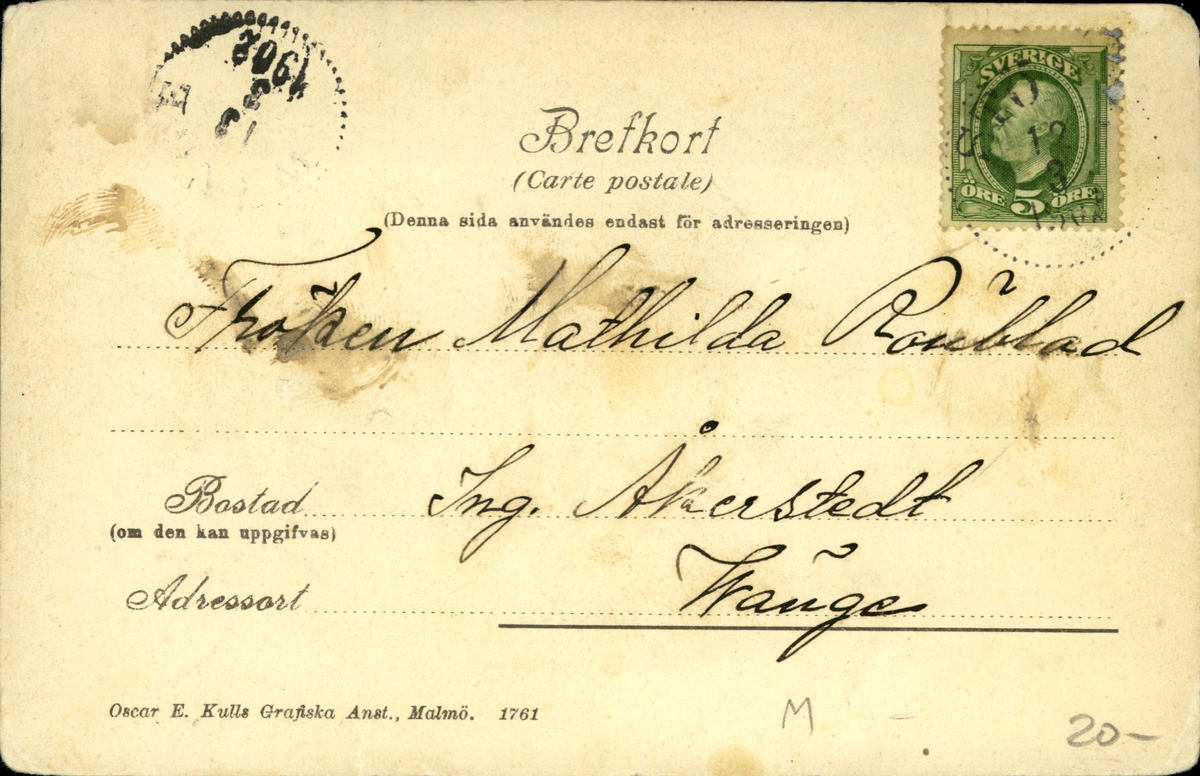 1902
SVERIGE
12
3
ÖRE 5 ÖRE
Brefkort
(Carte postale)
(Denna sida användes endast för adresseringen)
Fröken Mathilda Rönblad
Bostad Ing. Åkerstedt
(om den kan uppgifvas)
Adressort Wänge
Oscar E. Kulls Grafiska Anst., Malmö. 1761
M
20-